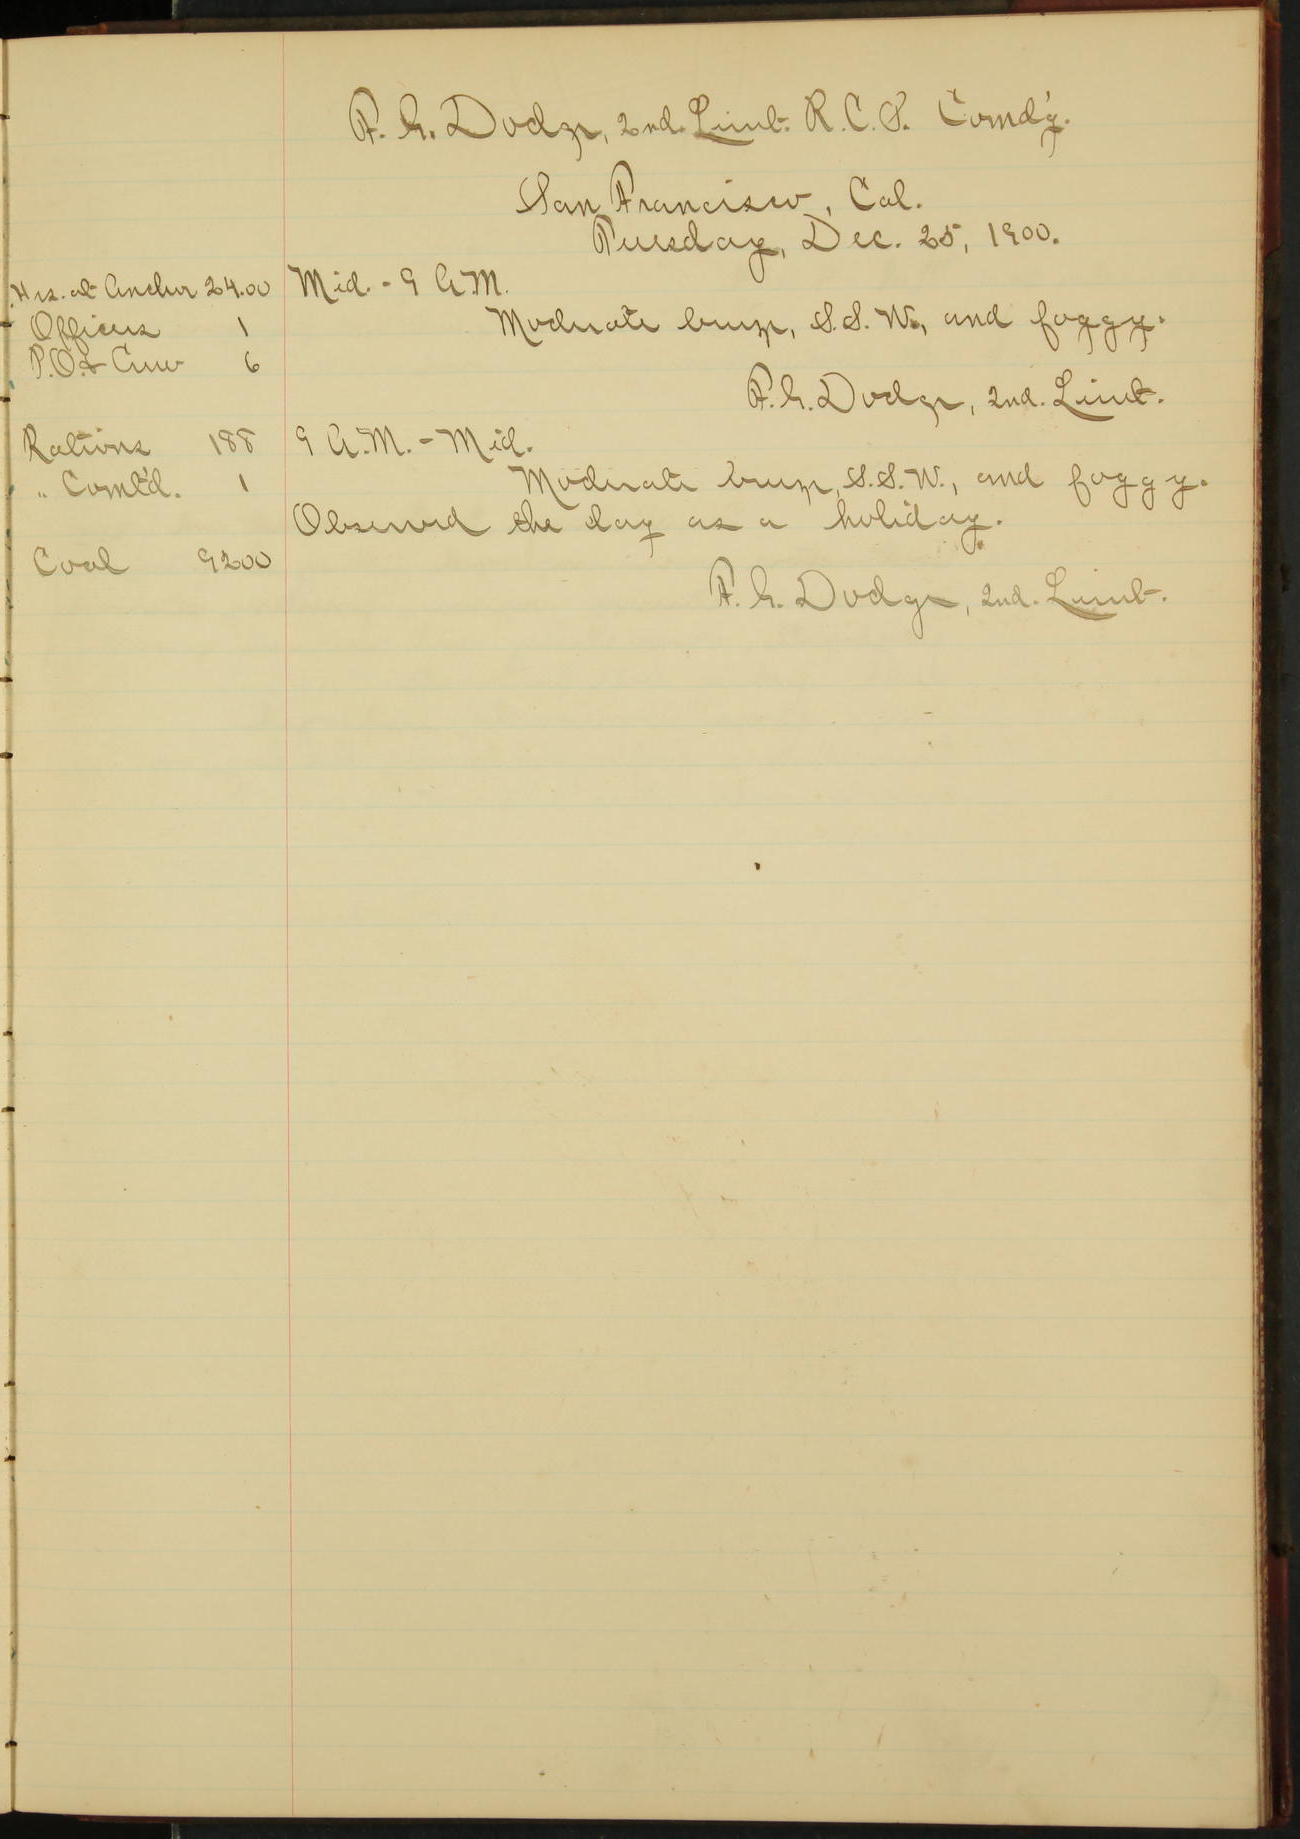 F. G. Dodge, 2nd. Lieut. R. C. S. Comd'g.
San Francisco, Cal.
Tuesday, Dec. 25, 1900.
Hrs. at Anchor 24.00 Mid. - 9 A.M.
Officers 1 Moderate breeze, S.S.W., and foggy.
P.O. & Crew 6
F. G. Dodge, 2nd. Lieut.
Rations 188 9 A.M. - Mid.
" Comt'd. 1 Moderate breeze, S.S.W., and foggy.
Observed the day as a holiday.
Coal 9200
F. G. Dodge, 2nd. Lieut.